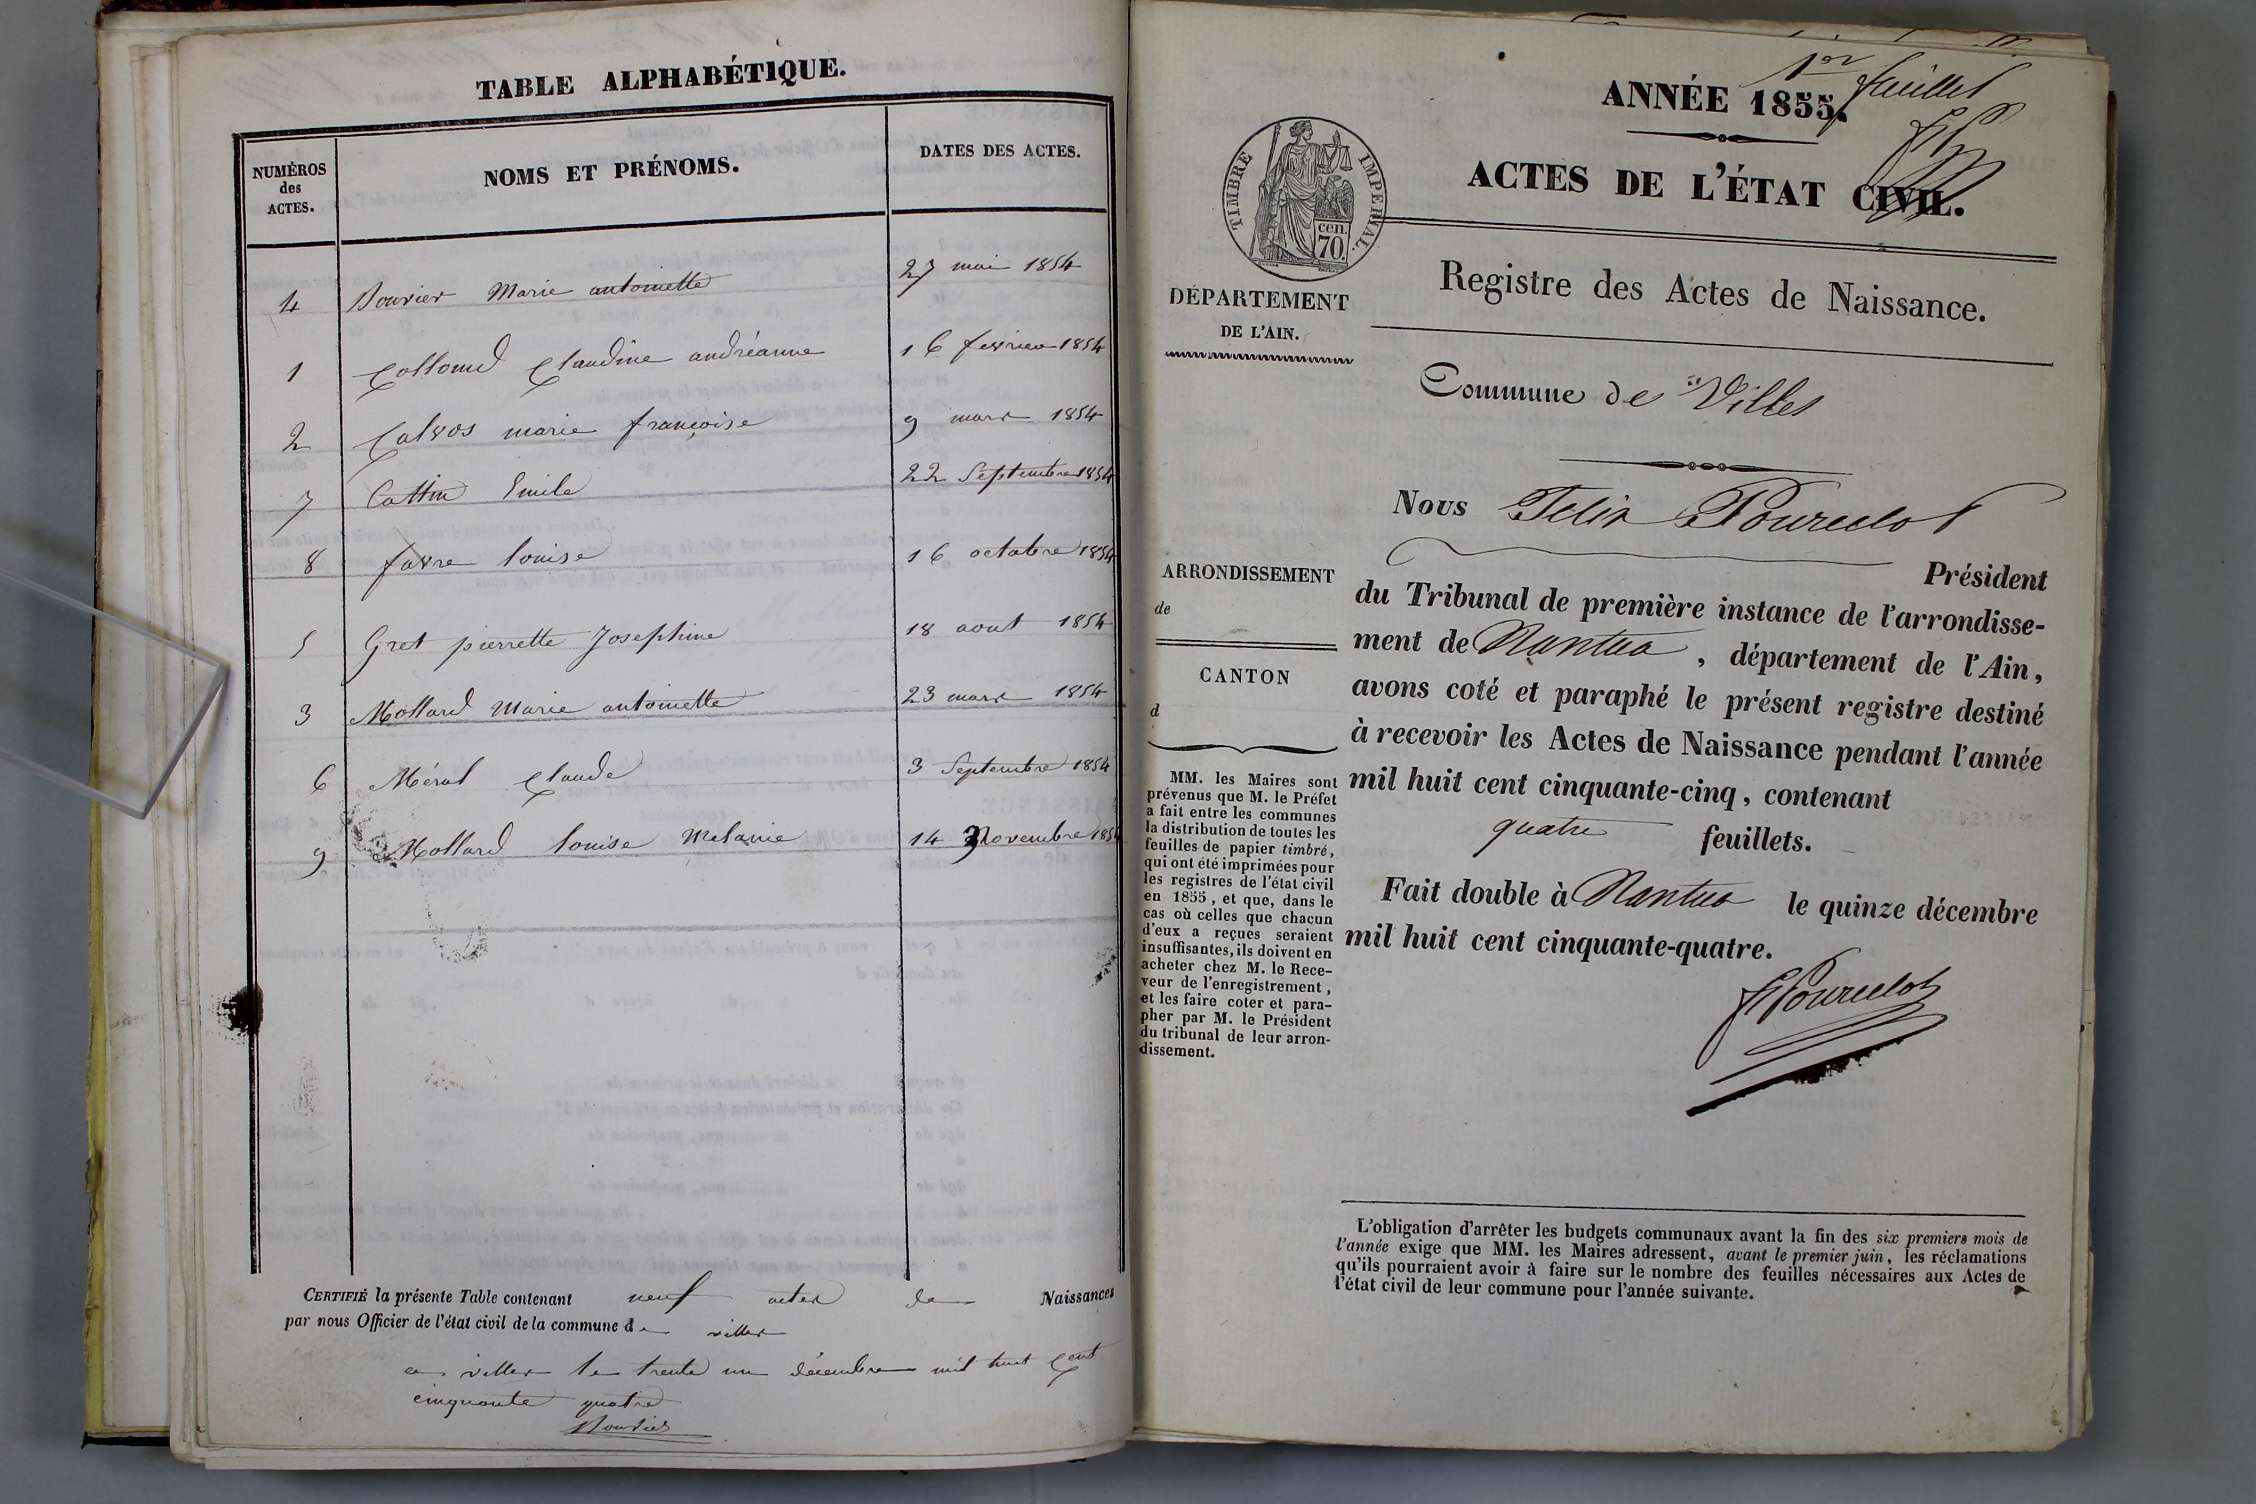 TABLE ALPHABÉTIQUE.
NUMÉROS des ACTES.
NOMS ET PRÉNOMS.
DATES DES ACTES.
4 Bouvier Marie antoinette 27 mai 1854
1 Collomb Claudine andréanne 16 février 1854
2 Calvos marie françoise 9 mars 1854
7 Cattin Emile 22 Septembre 1854
8 favre louise 16 octobre 1854
5 Gret pierrette Josephine 18 aout 1854
3 Mollard Marie antoinette 23 mars 1854
6 Méral Claude 3 Septembre 1854
9 Mollard louise Melanie 14 Novembre 1854
CERTIFIÉ la présente Table contenant neuf actes de Naissances
par nous Officier de l'état civil de la commune de villes
a villes le trente un décembre mil huit Cent
cinquante quatre
Bouvier
1er feuillet
ANNÉE 1855.
ACTES DE L'ÉTAT CIVIL.
TIMBRE IMPERIAL.
cen.
70.
DÉPARTEMENT
DE L'AIN.
Registre des Actes de Naissance.
Commune de Villes
Nous Felix Pourcelot
Président
du Tribunal de première instance de l'arrondisse-
ment de Nantua, département de l'Ain,
avons coté et paraphé le présent registre destiné
à recevoir les Actes de Naissance pendant l'année
mil huit cent cinquante-cinq, contenant
quatre feuillets.
Fait double à Nantua le quinze décembre
mil huit cent cinquante-quatre.
F Pourcelot
ARRONDISSEMENT
de
CANTON
d
MM. les Maires sont
prévenus que M. le Préfet
a fait entre les communes
la distribution de toutes les
feuilles de papier timbré,
qui ont été imprimées pour
les registres de l'état civil
en 1855, et que, dans le
cas où celles que chacun
d'eux a reçues seraient
insuffisantes, ils doivent en
acheter chez M. le Rece-
veur de l'enregistrement,
et les faire coter et para-
pher par M. le Président
du tribunal de leur arron-
dissement.
L'obligation d'arrêter les budgets communaux avant la fin des six premiers mois de
l'année exige que MM. les Maires adressent, avant le premier juin, les réclamations
qu'ils pourraient avoir à faire sur le nombre des feuilles nécessaires aux Actes de
l'état civil de leur commune pour l'année suivante.